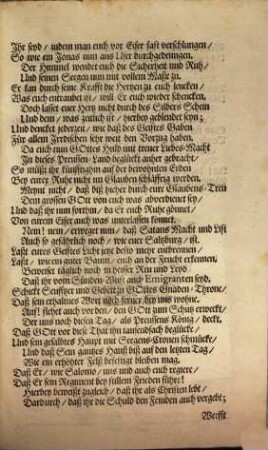 Ihr seyd / indem man euch vor Eifer fast verschlungen /
So wie ein Jonas nun ans Ufer durchgedrungen.
Der Himmel wendet euch die Sicherheit und Ruh /
Und seinen Seegen nun mit vollem Maße zu.
Er kan durch seine Krafft die Hertzen zu euch lencken /
Was euch entraubet ist / will Er euch wieder schencken.
Doch lasset eure Hertz nicht durch des Silbers Schein
Und dem / was zeitlich ist / hierbey geblendet seyn;
Und dencket jederzeit / wie daß des Geistes Gaben
Für allem Irrdischen sehr weit den Vorzug haben.
Da euch nun GOttes Huld mit treuer Liebes-Macht
In dieses Preussen-Land beglückt anher gebracht /
So müßt ihr künfftighin auf der bewohnten Erden
Bey eurer Ruhe nicht im Glauben schläffrig werden.
Meynt nicht / daß bißhieher durch eure Glaubens-Treu
Dem grossen GOtt von euch was abverdienet sey /
Und daß ihr nun forthin / da Er euch Ruhe gönnet /
Von eurem Eifer auch was unterlassen könnet.
Nein! nein / erweget nun / daß Satans Macht und List
Auch so gefährlich noch / wie eure Saltzburg / ist.
Laßt eures Geistes Licht jetzt desto mehr entbrennen /
Laßt / wie ein guter Baum / euch an der Frucht erkennen.
Beweiset täglich noch in heisser Reu und Leyd
Daß ihr vom Sünden-Wust auch Emigranten seyd.
Schickt Seuffzer und Gebeth zu GOttes Gnaden-Throne /
Daß sein erhaltnes Wort noch ferner bey uns wohne.
Auf! flehet auch vor den / den GOtt zum Schutz erweckt /
Der uns noch diesen Tag / als Preussens König / deckt.
Daß GOtt vor diese That ihn tausendfach beglücke /
Und sein gesalbtes Haupt mit Seegens-Cronen schmücke /
Und daß Sein gantzes Hauß biß auf den letzten Tag /
Wie ein erhöhter Felß befestigt bleiben mag.
Daß Er / wie Salomo / uns und auch euch regiere /
Daß Er sein Regiment bey süssem Frieden führe!
Hierbey beweißt zugleich / daß ihr als Christen lebt /
Dardurch / daß ihr die Schuld den Feinden auch vergebt.
Werfft